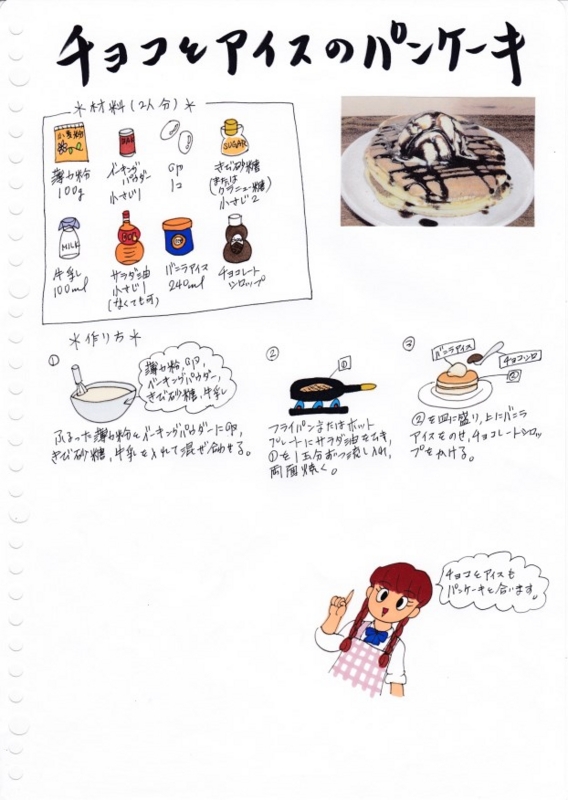 チョコとアイスのパンケーキ
*材料(2人分)*
小麦粉
薄力粉
100g
ベーキング
パウダー
小さじ1
卵
1コ
SUGAR
きび砂糖
(または
グラニュー糖)
小さじ2
MILK
牛乳
100ml
サラダ油
小さじ1
(なくても可)
バニラアイス
240ml
チョコレート
シロップ
*作り方*
①
薄力粉,卵,
ベーキングパウダー,
きび砂糖,牛乳
ふるった薄力粉とベーキングパウダーに卵,
きび砂糖,牛乳を入れて混ぜ合わせる。
②
①
フライパンまたはホット
プレートにサラダ油をひき,
①を1枚分ずつ流し入れ,
両面焼く。
③
バニラアイス
チョコシロ
②
②を皿に盛り,上にバニラ
アイスをのせ,チョコレートシロッ
プをかける。
チョコとアイスも
パンケーキと合います。